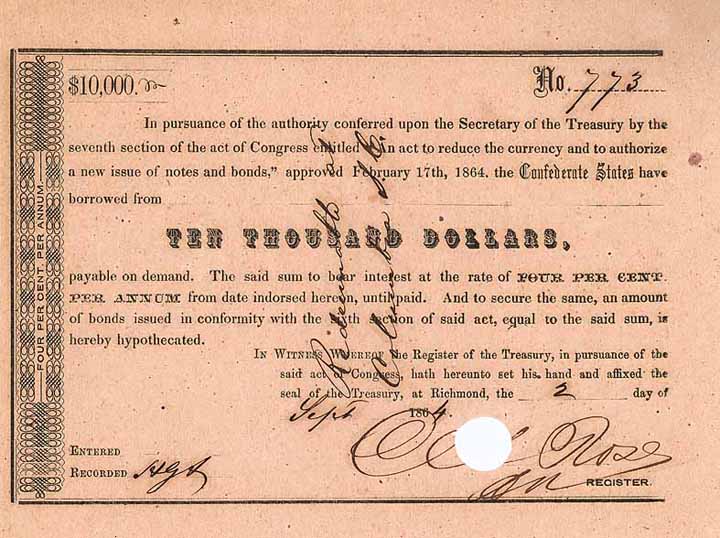 $10,000.
No. 773
In pursuance of the authority conferred upon the Secretary of the Treasury by the
seventh section of the act of Congress entitled in act to reduce the currency and to authorize
a new issue of notes and bonds," approved February 17th, 1864. the Confederate States have
borrowed from
TEN THOUSAND DOLLARS,
payable on demand. The said sum to bear interest at the rate of FOUR PER CENT.
PER ANNUM from date indorsed herein, until paid. And to secure the same, an amount
of bonds issued in conformity with the sixth section of said act, equal to the said sum, is
hereby hypothecated.
IN WITNESS WHEREOF the Register of the Treasury, in pursuance of the
said act of Congress, hath hereunto set his hand and affixed the
seal of the Treasury, at Richmond, the 2 day of
Sept 1864.
ENTERED
RECORDED
Rose
REGISTER.
FOUR PER CENT. PER ANNUM
Redeemable at
Columbia